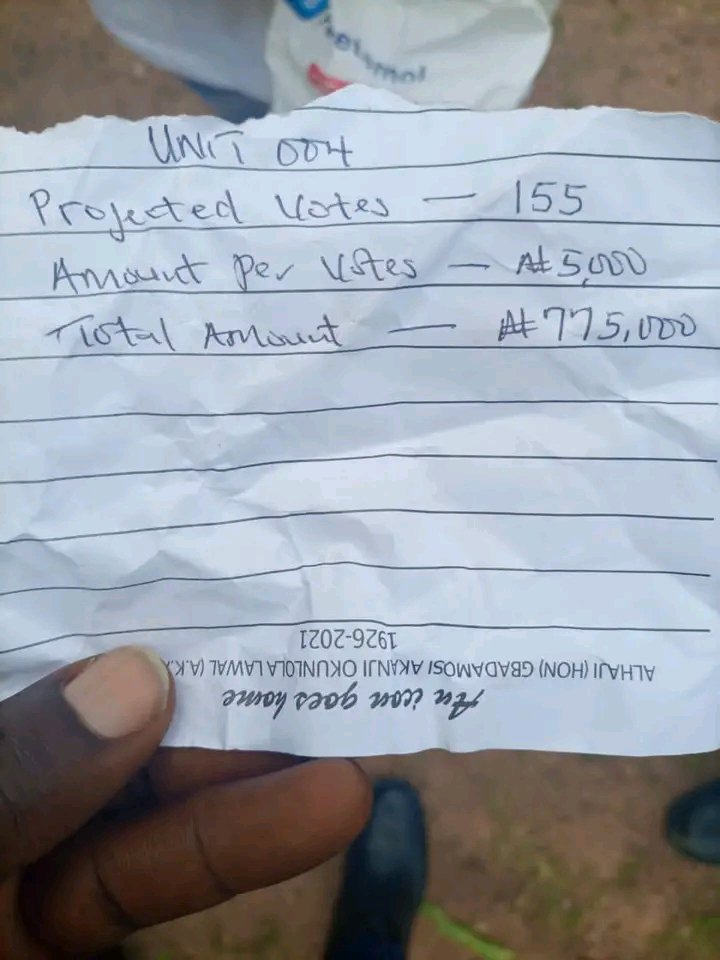 UNIT 004
Projected Votes — 155
Amount Per Votes — ₦5,000
Total Amount — ₦775,000
1926-2021
ALHAJI (HON) GBADAMOSI AKANJI OKUNLOLA LAWAL (A.K.
An icon goes home